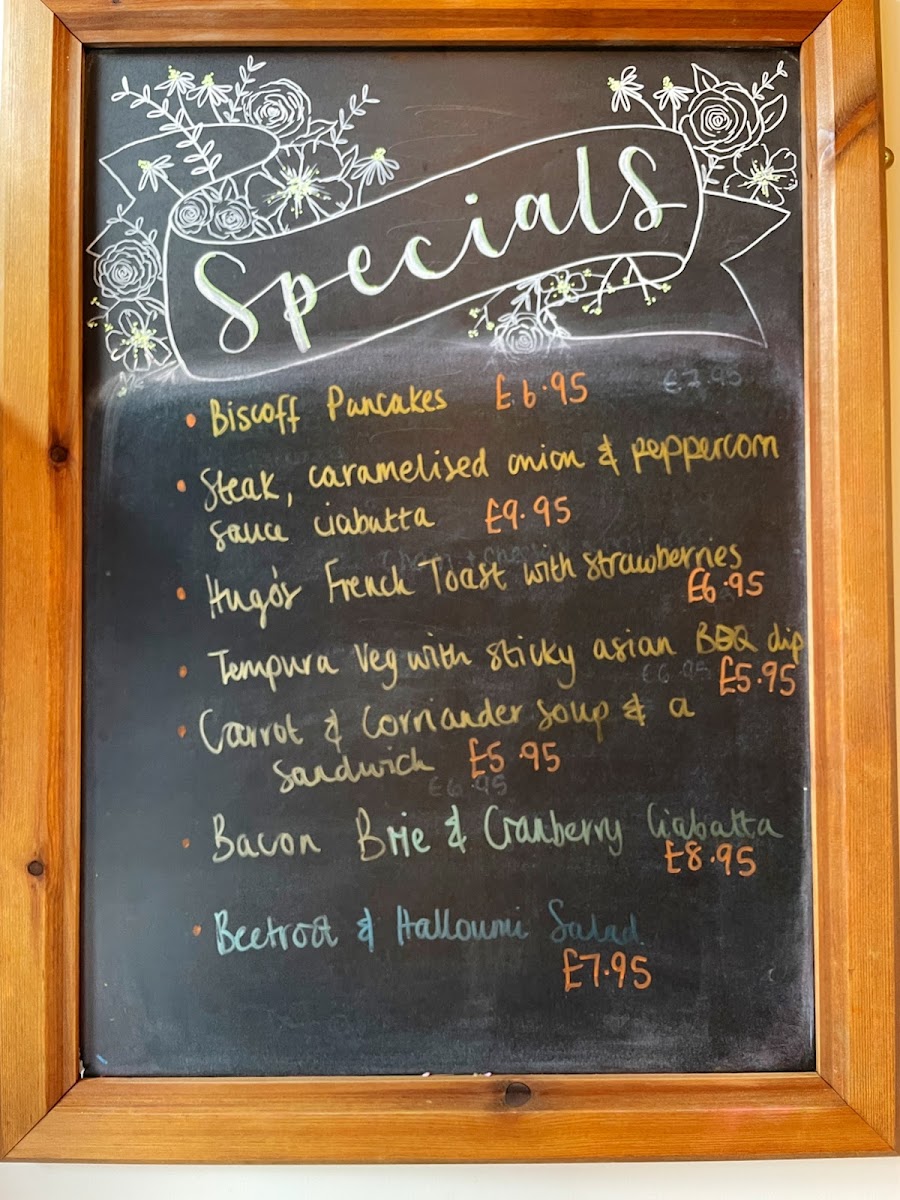 Specials
• Biscoff Pancakes £6.95 £7.95
• Steak, caramelised onion & peppercorn
sauce ciabatta £9.95
• Hugo's French Toast with strawberries
£6.95
• Tempura Veg with sticky asian BBQ dip
£6.95 £5.95
• Carrot & Corriander soup & a
sandwich £5.95
£6.95
• Bacon Brie & Cranberry Ciabatta
£8.95
• Beetroot & Halloumi Salad
£7.95